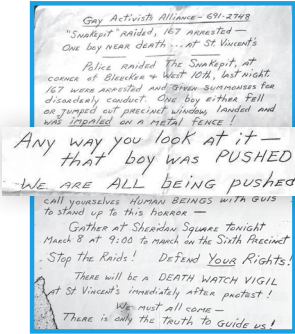 Gay Activists Alliance - 691-2748
"Snakepit" raided, 167 arrested —
One boy near death ... at St Vincent's
Police raided The Snakepit, at
corner of Bleecker & West 10th, last night.
167 were arrested and given summonses for
disorderly conduct. One boy either fell
or jumped out precinct window, landed and
was impaled on a metal fence!
Any way you look at it —
that boy was PUSHED
WE ARE ALL being pushed
call yourselves HUMAN BEINGS with GUTS
to stand up to this horror —
Gather at Sheridan Square tonight
March 8 at 9:00 to march on the Sixth Precinct
Stop the Raids! Defend Your Rights!
There will be a DEATH WATCH VIGIL
at St Vincent's immediately after protest!
We must all come —
There is only the Truth to Guide us!